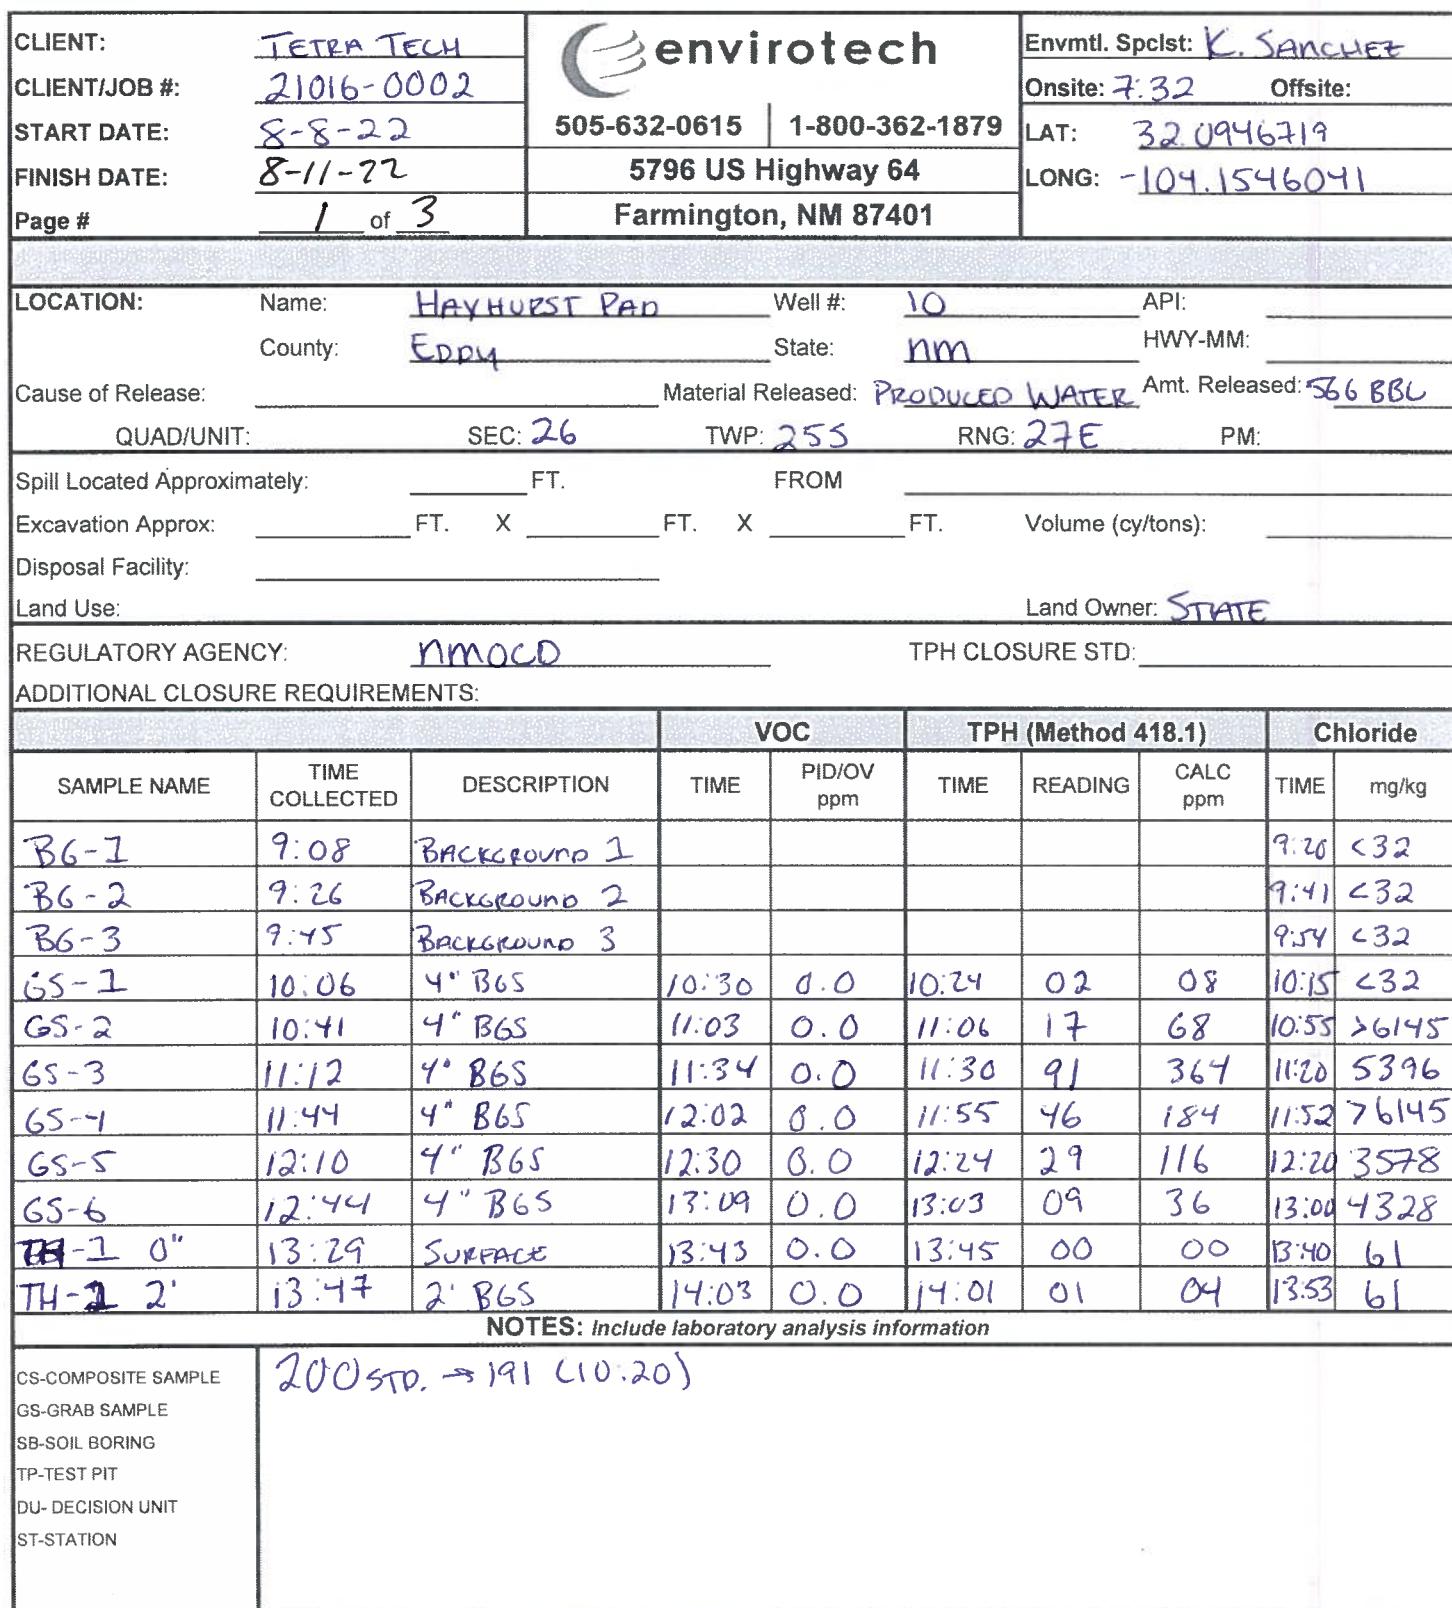 CLIENT: TETRA TECH
CLIENT/JOB #: 21016-0002
START DATE: 8-8-22
FINISH DATE: 8-11-22
Page # 1 of 3
envirotech
505-632-0615 | 1-800-362-1879
5796 US Highway 64
Farmington, NM 87401
Envmtl. Spclst: K. SANCHEZ
Onsite: 7:32 Offsite:
LAT: 32.0946719
LONG: -104.1546041
LOCATION: Name: HAYHURST PAD Well #: 10 API:
County: EDDY State: nm HWY-MM:
Cause of Release: Material Released: PRODUCED WATER Amt. Released: 566 BBL
QUAD/UNIT: SEC: 26 TWP: 25S RNG: 27E PM:
Spill Located Approximately: FT. FROM
Excavation Approx: FT. X FT. X FT. Volume (cy/tons):
Disposal Facility:
Land Use: Land Owner: STATE
REGULATORY AGENCY: NMOCD TPH CLOSURE STD:
ADDITIONAL CLOSURE REQUIREMENTS:
VOC TPH (Method 418.1) Chloride
SAMPLE NAME TIME COLLECTED DESCRIPTION TIME PID/OV ppm TIME READING CALC ppm TIME mg/kg
BG-1 9:08 BACKGROUND 1 9:20 <32
BG-2 9:26 BACKGROUND 2 9:41 <32
BG-3 9:45 BACKGROUND 3 9:54 <32
GS-1 10:06 4" BGS 10:30 0.0 10:24 02 08 10:15 <32
GS-2 10:41 4" BGS 11:03 0.0 11:06 17 68 10:55 >6145
GS-3 11:12 4" BGS 11:34 0.0 11:30 91 364 11:20 5396
GS-4 11:44 4" BGS 12:02 0.0 11:55 46 184 11:52 >6145
GS-5 12:10 4" BGS 12:30 0.0 12:24 29 116 12:20 3578
GS-6 12:44 4" BGS 13:09 0.0 13:03 09 36 13:00 4328
TH-1 0" 13:29 SURFACE 13:43 0.0 13:45 00 00 13:40 61
TH-1 2' 13:47 2' BGS 14:03 0.0 14:01 01 04 13:53 61
NOTES: Include laboratory analysis information
CS-COMPOSITE SAMPLE
GS-GRAB SAMPLE
SB-SOIL BORING
TP-TEST PIT
DU- DECISION UNIT
ST-STATION
200 STD. → 191 (10:20)